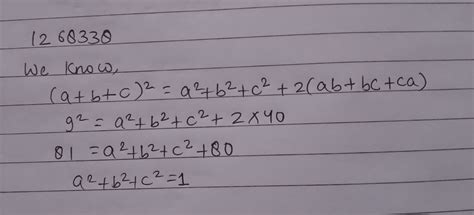 1268330
We know,
(a+b+c)² = a²+b²+c² + 2(ab+bc+ca)
9² = a²+b²+c² + 2×40
81 = a²+b²+c² +80
a²+b²+c² =1